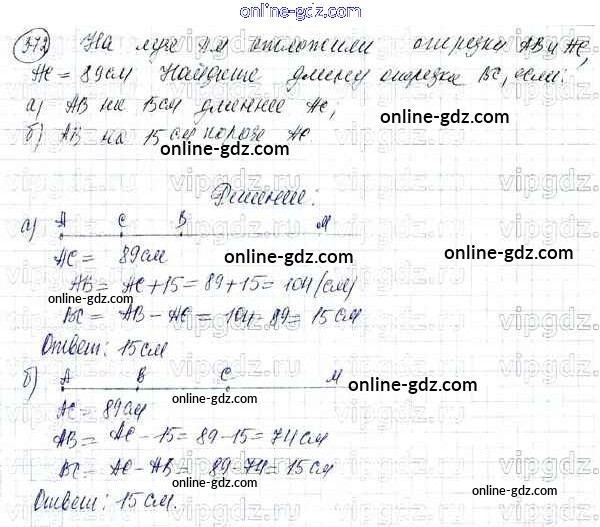 online-gdz.com
372 На луче АМ отложили отрезки АВ и АС,
АС = 89см Найдите длину отрезка ВС, если:
а) АВ на 15см длиннее АС;
online-gdz.com
б) АВ на 15 см короче АС
online-gdz.com
vipgdz.
Решение:
а) А С В М
АС = 89см
online-gdz.com
online-gdz.com
АВ = АС + 15 = 89 + 15 = 104 (см)
online-gdz.com
ВС = АВ - АС = 104 - 89 = 15 см
online-gdz.com
Ответ: 15 см
б) А В С М
online-gdz.com
АС = 89см
online-gdz.com
АВ = АС - 15 = 89 - 15 = 74 см
ВС = АС - АВ = 89 - 74 = 15 см
online-gdz.com
Ответ: 15 см.
online-gdz.com